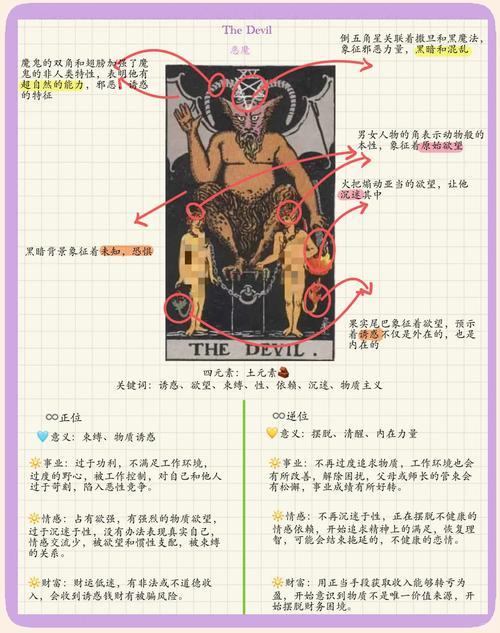 The Devil
恶魔
倒五角星关联着撒旦和黑魔法,
象征邪恶力量, 黑暗和混乱
魔鬼的双角和翅膀加强了魔
鬼的非人类特性, 表明他有
超自然的能力, 邪恶、诱惑
的特征
男女人物的角表示动物般的
本性, 象征着原始欲望
火把煽动亚当的欲望, 让他
沉迷其中
黑暗背景象征着未知, 恐惧
果实尾巴象征着欲望, 预示
着诱惑不仅是外在的, 也是
内在的
THE DEVIL.
四元素: 土元素
关键词: 诱惑、欲望、束缚、性、依赖、沉迷、物质主义
正位
意义: 束缚、物质诱惑
事业: 过于功利, 不满足工作环境,
过度的野心, 被工作控制, 对自己和他人
过于苛刻, 陷入恶性竞争。
情感: 占有欲强, 有强烈的物质欲望,
过于沉迷于性, 没有办法表现真实自己,
情感交流少, 被欲望和惯性支配, 被束缚
的关系。
财富: 财运低迷, 有非法或不道德收
入, 会收到诱惑钱财有被骗风险。
逆位
意义: 摆脱、清醒、内在力量
事业: 不再过度追求物质, 工作环境也会
有所改善, 解除困扰, 父母或师长的管束会
有松懈, 事业成绩有所好转。
情感: 不再沉迷于性, 正在摆脱不健康的
情感依赖, 开始追求精神上的满足, 恢复理
智, 可能会结束拖延的, 不健康的恋情。
财富: 用正当手段获取收入能够转亏为
盈, 开始意识到物质不是唯一价值来源, 开
始摆脱财务困境。